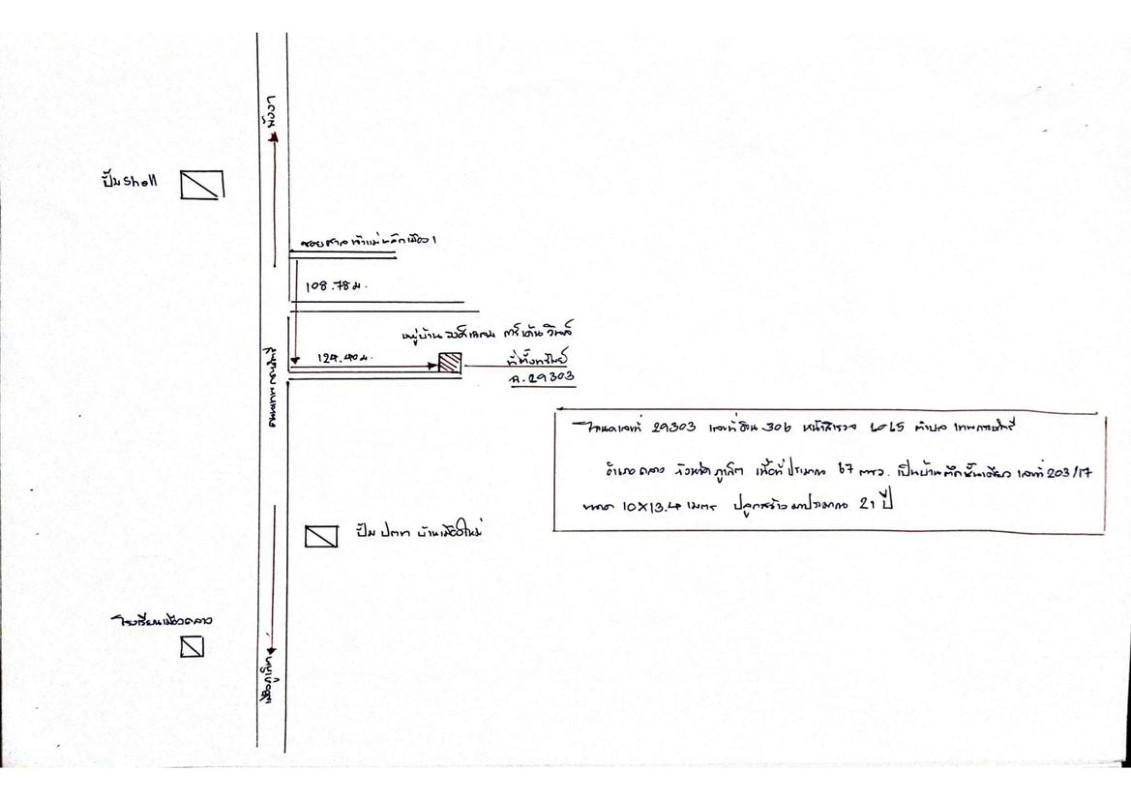 พังงา
ปั๊ม Shell
ซอยศาลเจ้าแม่หลักเมือง 1
108.78 ม.
หมู่บ้าน การ์เด้น วิลล์
124.40 ม.
ที่ตั้งทรัพย์
ฉ.29303
ถนนเทพกระษัตรี
โฉนดเลขที่ 29303 เลขที่ดิน 306 หน้าสำรวจ ตำบล เทพกระษัตรี
อำเภอ ถลาง จังหวัด ภูเก็ต เนื้อที่ ประมาณ 67 ตรว. เป็นบ้านตึกชั้นเดียว เลขที่ 203/17
ขนาด 10X13.4 เมตร ปลูกสร้างมาประมาณ 21 ปี
ปั๊ม ปตท บ้านเมืองใหม่
โรงเรียนเมืองถลาง
เมืองภูเก็ต